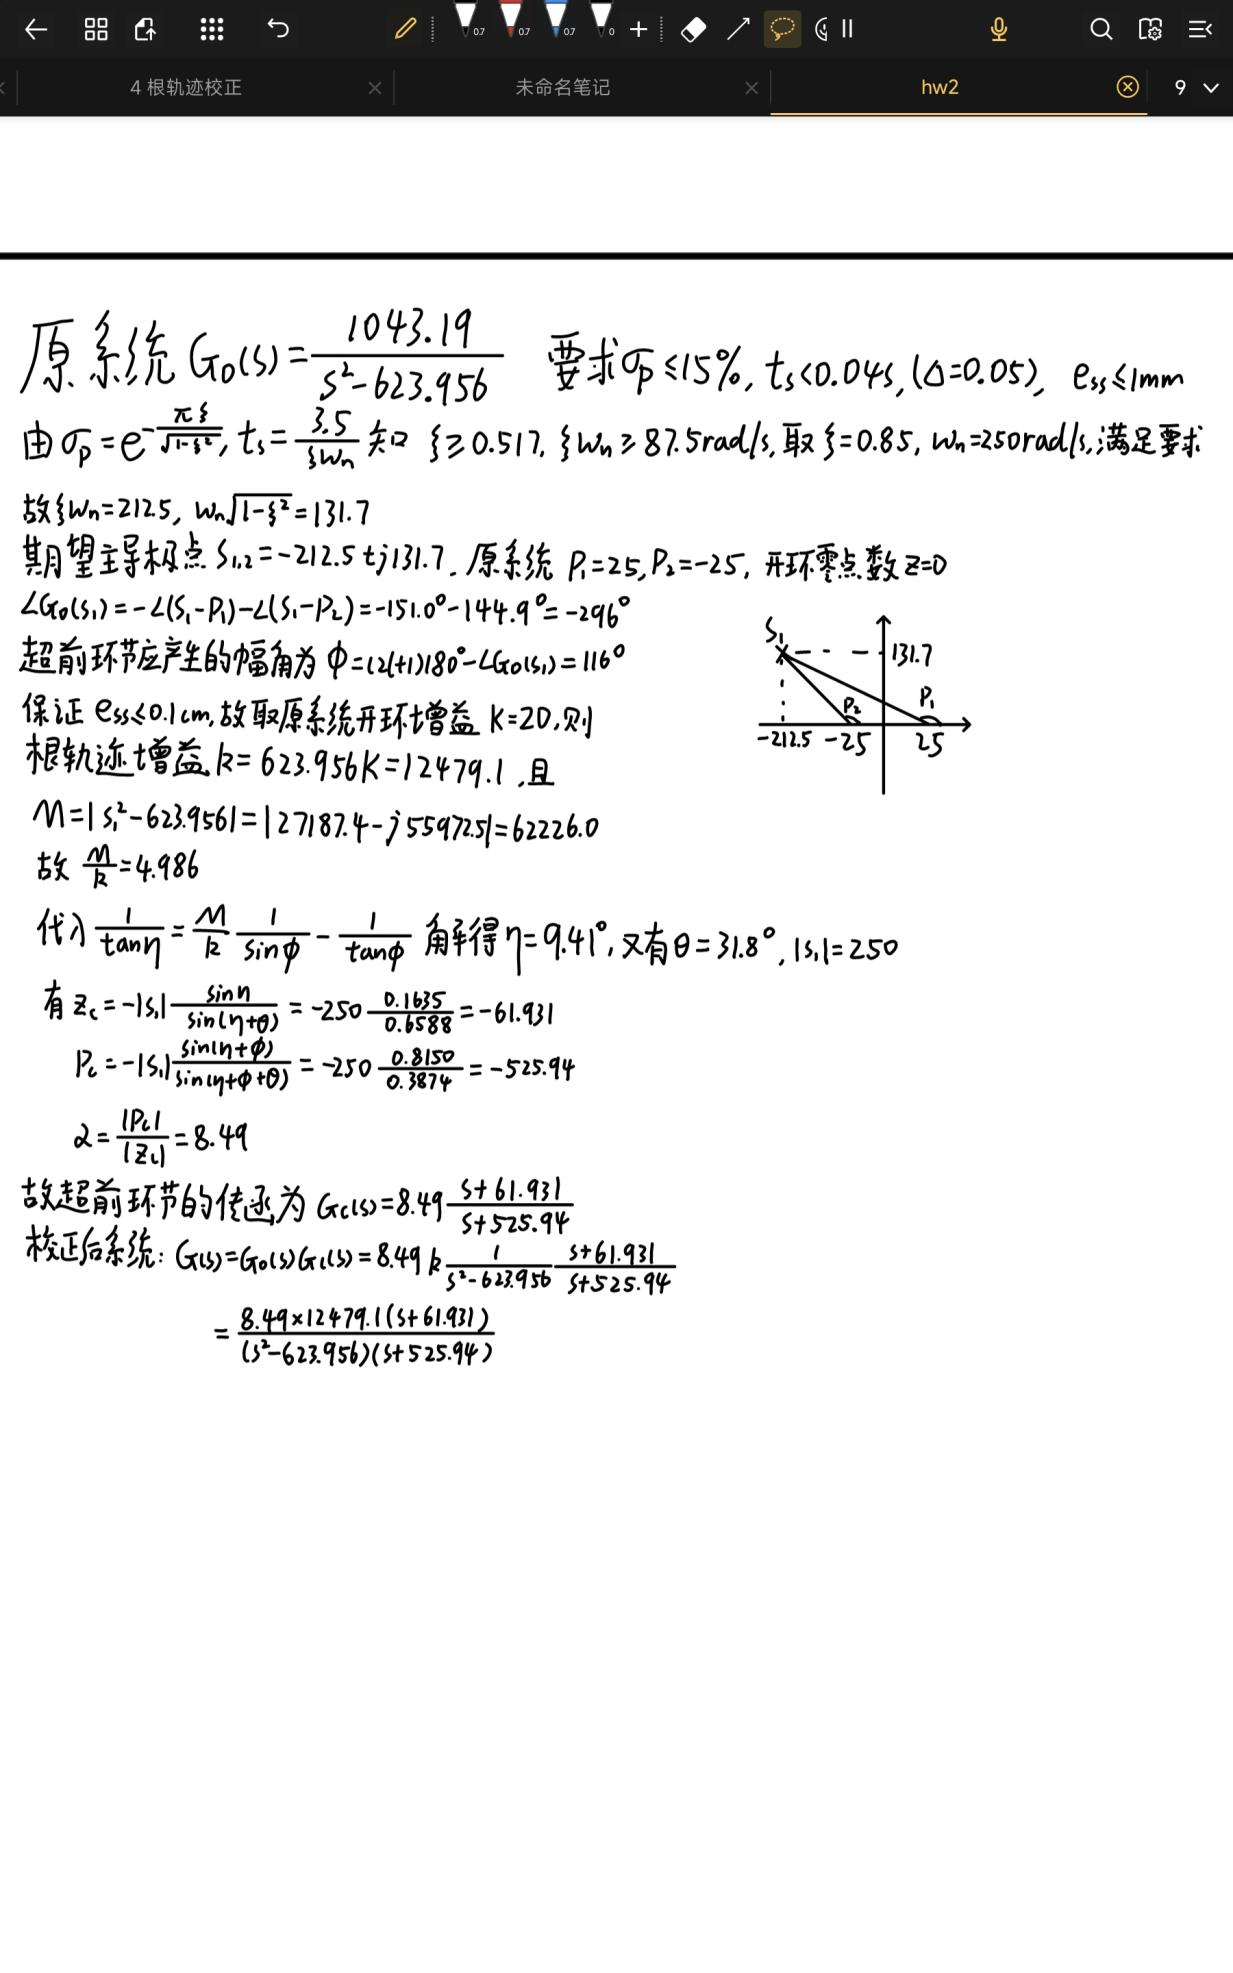 0.7 0.7 0.7 0
4 根轨迹校正 未命名笔记 hw2 9
原系统 G₀(s)=1043.19/(s²-623.956) 要求σp≤15%, ts<0.04s, (Δ=0.05), ess≤1mm
由 σp=e^(-πξ/√(1-ξ²)), ts=3.5/(ξwn) 知 ξ≥0.517, ξwn≥87.5rad/s, 取ξ=0.85, wn=250rad/s, 满足要求
故ξwn=212.5, wn√(1-ξ²)=131.7
期望主导极点 S₁,₂=-212.5±j131.7. 原系统 P₁=25, P₂=-25, 开环零点数 z=0
∠G₀(s₁)=-∠(s₁-p₁)-∠(s₁-p₂)=-151.0°-144.9°=-296°
超前环节应产生的幅角为 φ=(2l+1)180°-∠G₀(s₁)=116°
S₁ 131.7
P₂ P₁
-212.5 -25 25
保证 ess≤0.1cm, 故取原系统开环增益 K=20, 则
根轨迹增益 k=623.956K=12479.1, 且
M=|s₁²-623.956|=|27187.4-j55972.5|=62226.0
故 M/k=4.986
代入 1/tanη=M/k 1/sinφ-1/tanφ 解得η=9.41°, 又有θ=31.8°, |s₁|=250
有 zc=-|s₁| sinη/sin(η+θ)=-250 0.1635/0.6588=-61.931
Pc=-|s₁| sin(η+φ)/sin(η+φ+θ)=-250 0.8150/0.3874=-525.94
α=|Pc|/|zc|=8.49
故超前环节的传函为 Gc(s)=8.49 (s+61.931)/(s+525.94)
校正后系统: G(s)=G₀(s)Gc(s)=8.49k 1/(s²-623.956) (s+61.931)/(s+525.94)
=8.49×12479.1(s+61.931)/((s²-623.956)(s+525.94))